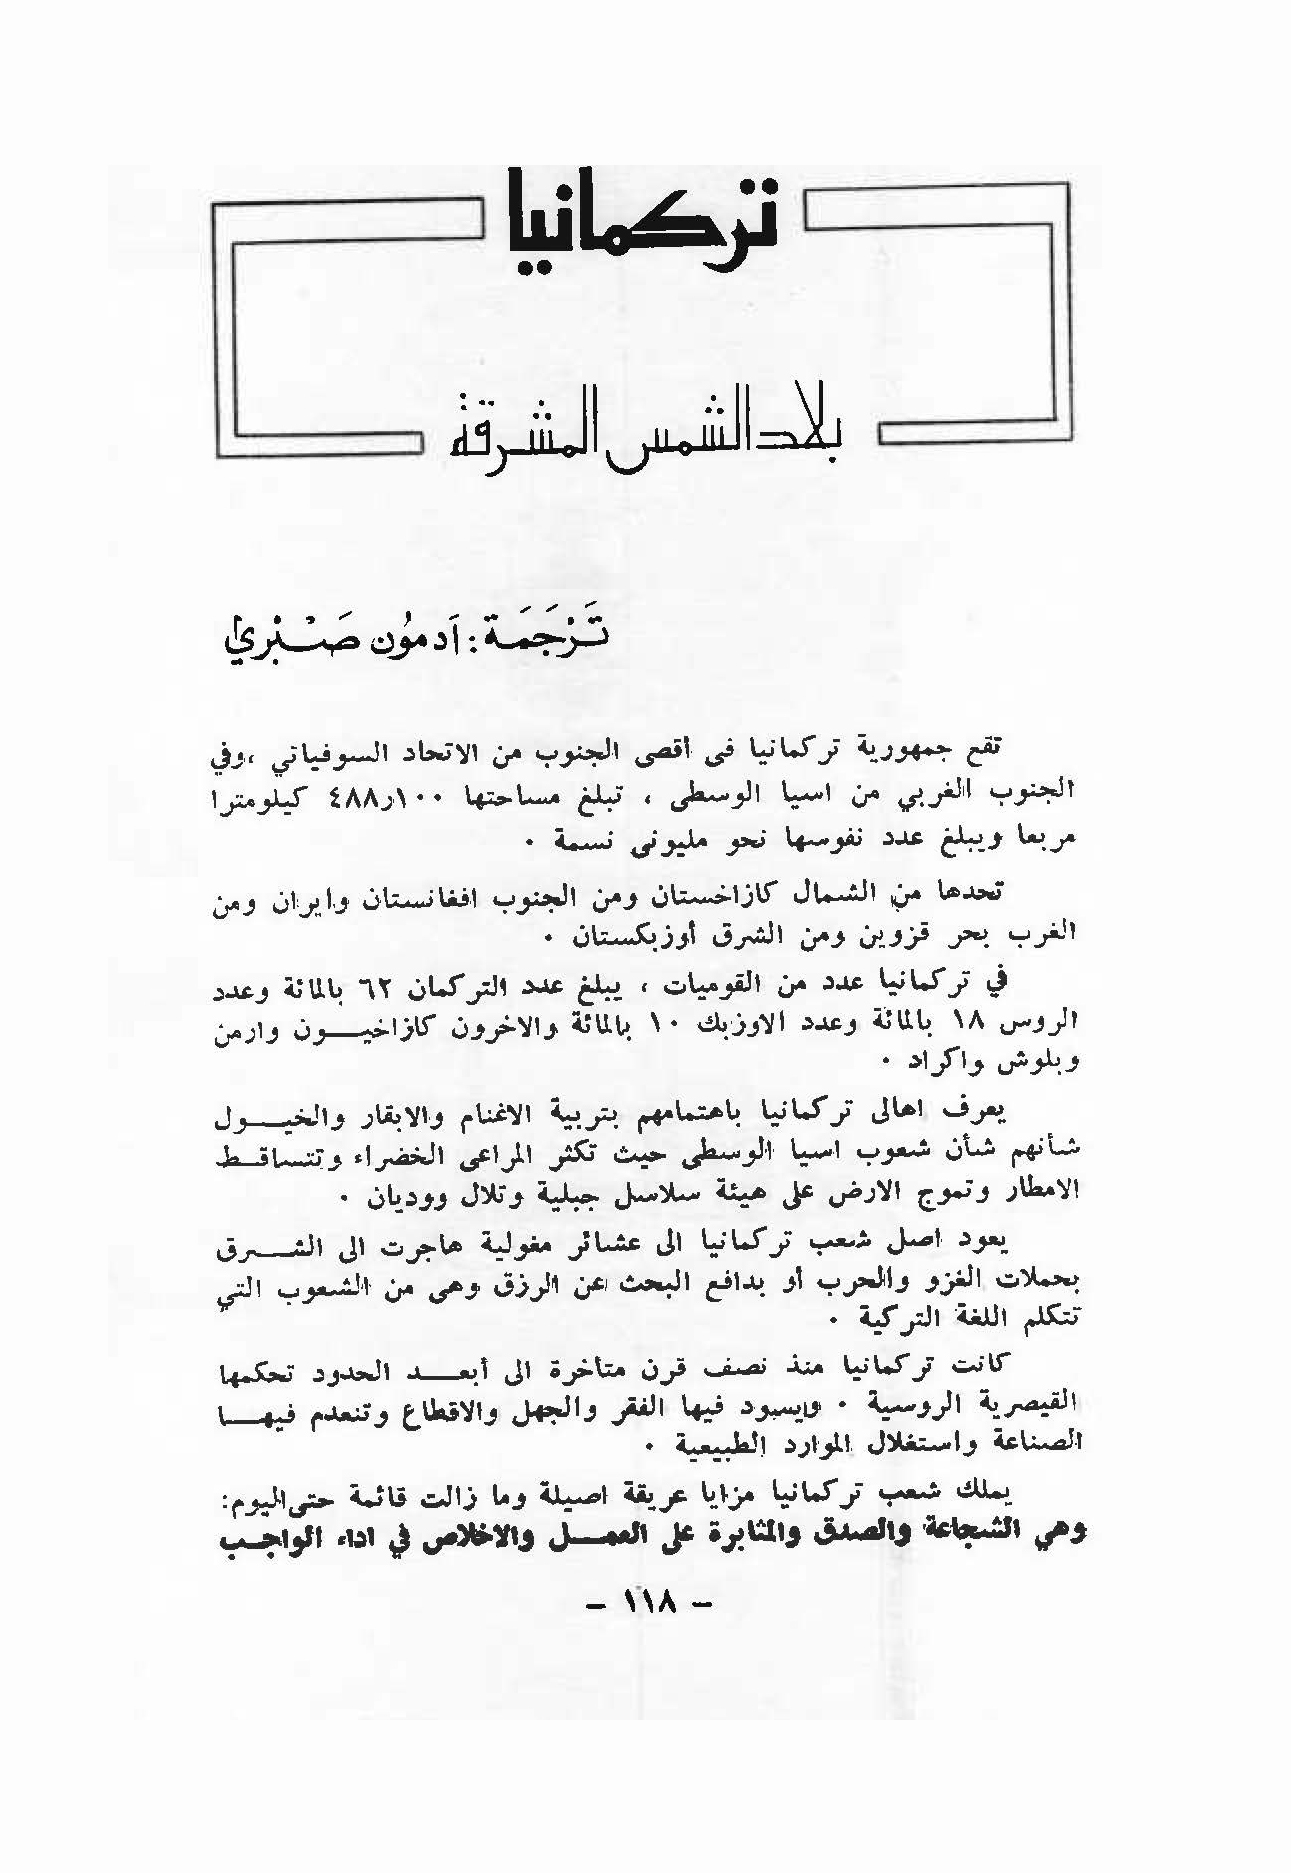 تركمانيا
بلاد الشمس المشرقة
تَرْجَمَة : اَدمُون صَبْري
تقع جمهورية تركمانيا فى أقصى الجنوب من الاتحاد السوفياتي ،وفي
الجنوب الغربي من اسيا الوسطى ، تبلغ مساحتها ٤٨٨٫١٠٠ كيلومترا
مربعا ويبلغ عدد نفوسها نحو مليونى نسمة ٠
تحدها من الشمال كازاخستان ومن الجنوب افغانستان وايران ومن
الغرب بحر قزوين ومن الشرق أوزبكستان ٠
في تركمانيا عدد من القوميات ، يبلغ عدد التركمان ٦٢ بالمائة وعدد
الروس ١٨ بالمائة وعدد الاوزبك ١٠ بالمائة والاخرون كازاخيـــون وارمن
وبلوش واكراد ٠
يعرف اهالى تركمانيا باهتمامهم بتربية الاغنام والابقار والخيــول
شأنهم شأن شعوب اسيا الوسطى حيث تكثر المراعى الخضراء وتتساقـط
الامطار وتموج الارض على هيئة سلاسل جبلية وتلال ووديان ٠
يعود اصل شعب تركمانيا الى عشائر مغولية هاجرت الى الشـــرق
بحملات الغزو والحرب أو بدافع البحث عن الرزق وهي من الشعوب التي
تتكلم اللغة التركية ٠
كانت تركمانيا منذ نصف قرن متأخرة الى أبعـــد الحدود تحكمها
القيصرية الروسية ٠ ويسود فيها الفقر والجهل والاقطاع وتنعدم فيهــا
الصناعة واستغلال الموارد الطبيعية ٠
يملك شعب تركمانيا مزايا عريقة اصيلة وما زالت قائمة حتى اليوم:
وهي الشجاعة والصدق والمثابرة على العمــل والاخلاص في اداء الواجـب
– ١١٨ –